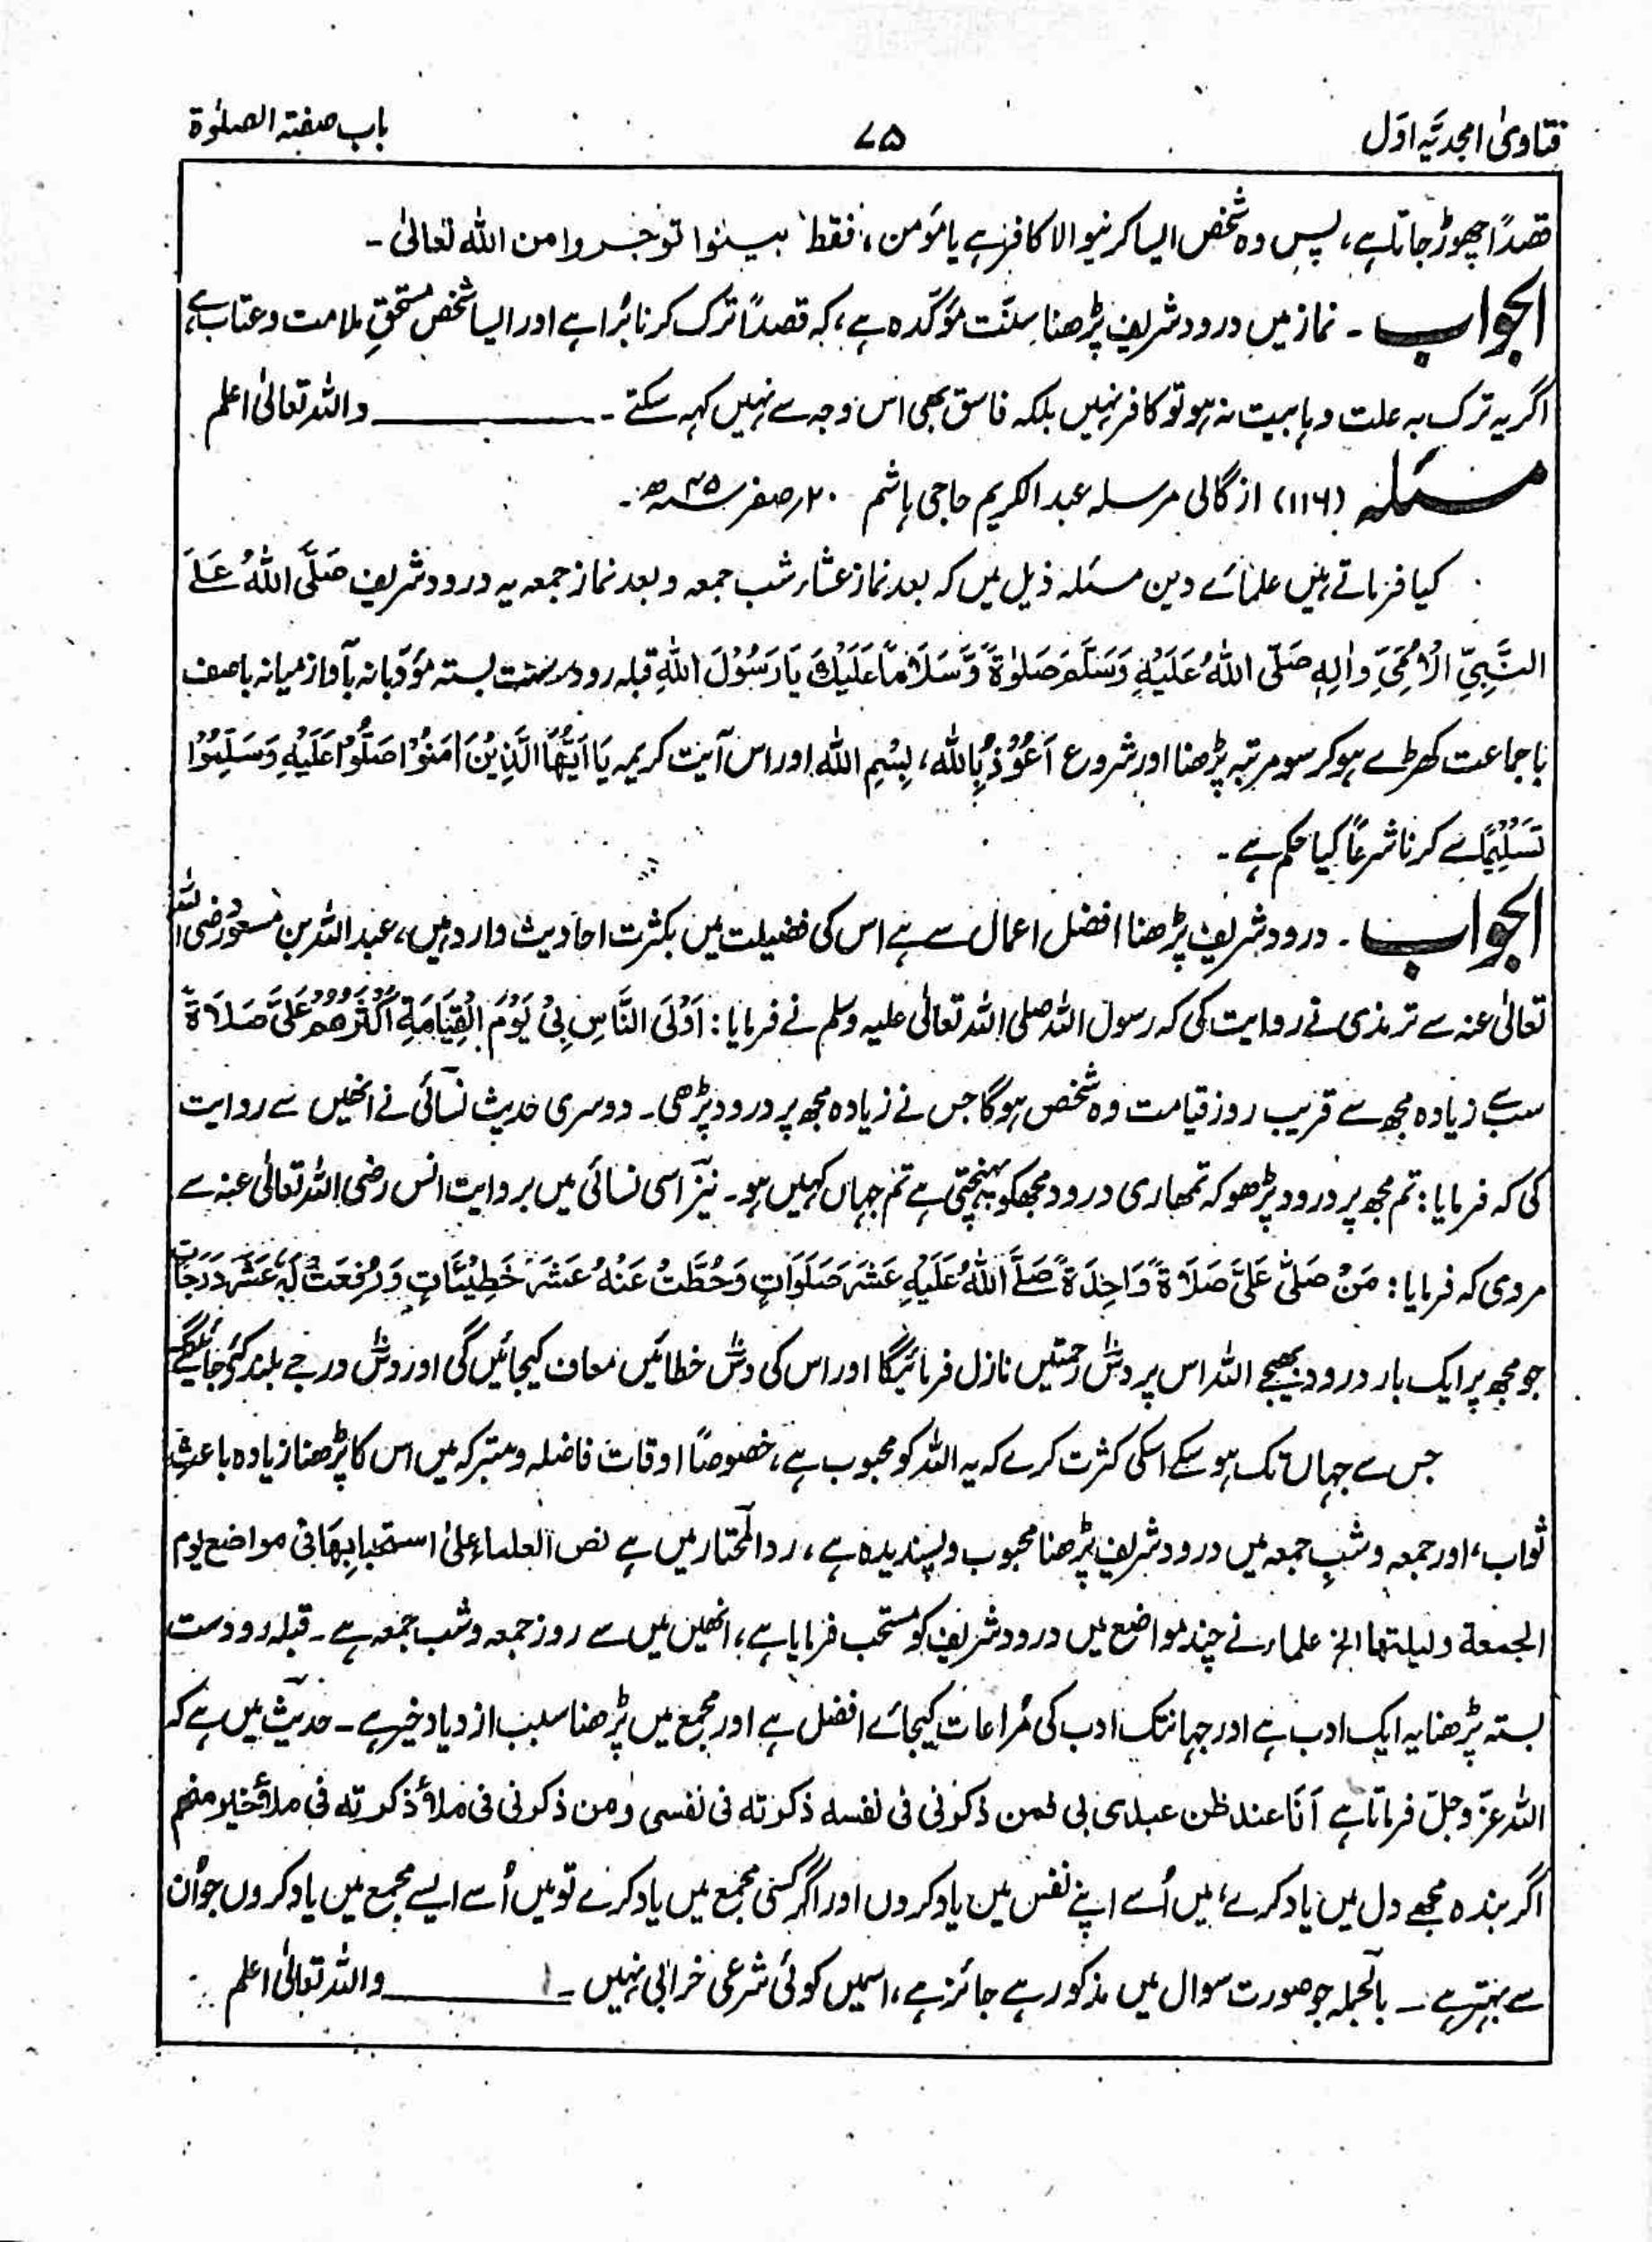 فتاویٰ امجدیہ اوّل
۷۵
باب صفۃ الصلوٰۃ
قصداً چھوڑ جاتا ہے، پس وہ شخص ایسا کرنیوالا کافر ہے یا مؤمن، فقط بینوا توجروا من اللہ تعالیٰ ـ
الجواب ـ نماز میں درود شریف پڑھنا سنت مؤکدہ ہے، کہ قصداً ترک کرنا برا ہے اور ایسا شخص مستحقِ ملامت و عتاب ہے،
اگر یہ ترک بہ علت وہابیت نہ ہو تو کافر نہیں بلکہ فاسق بھی اس وجہ سے نہیں کہہ سکتے ـ واللہ تعالیٰ اعلم
مسئلہ (۱۱۶) از گالی مرسلہ عبد الکریم حاجی ہاشم ۲۰؍ صفر ۴۵ھ ـ
کیا فرماتے ہیں علمائے دین مسئلہ ذیل میں کہ بعد نماز عشاء شب جمعہ و بعد نماز جمعہ یہ درود شریف صَلَّی اللّٰہُ عَلَے
النَّبِیِّ الْاُمِّیِّ وَاٰلِہٖ صَلَّی اللّٰہُ عَلَیْہِ وَسَلَّمَ صَلٰوۃً وَّسَلَامًا عَلَیْكَ یَا رَسُوْلَ اللّٰہِ قبلہ رو دست بستہ مؤدبانہ بآواز میانہ باصف
باجماعت کھڑے ہو کر سو مرتبہ پڑھنا اور شروع اَعُوْذُ بِاللہ، بِسْمِ اللہ اور اس آیت کریمہ یَا اَیُّھَا الَّذِیْنَ اٰمَنُوْا صَلُّوْا عَلَیْہِ وَسَلِّمُوْا
تَسْلِیْمًا سے کرنا شرعاً کیا حکم ہے ـ
الجواب ـ درود شریف پڑھنا افضل اعمال سے ہے اس کی فضیلت میں بکثرت احادیث وارد ہیں، عبد اللہ بن مسعود رضی اللہ
تعالیٰ عنہ سے ترمذی نے روایت کی کہ رسول اللہ صلی اللہ تعالیٰ علیہ وسلم نے فرمایا: اَوْلَی النَّاسِ بِیْ یَوْمَ الْقِیَامَۃِ اَکْثَرُھُمْ عَلَیَّ صَلَاۃً
سب سے زیادہ مجھ سے قریب روز قیامت وہ شخص ہوگا جس نے زیادہ مجھ پر درود پڑھی ـ دوسری حدیث نسائی نے انھیں سے روایت
کی کہ فرمایا: تم مجھ پر درود پڑھو کہ تمھاری درود مجھکو پہنچتی ہے تم جہاں کہیں ہو ـ نیز اسی نسائی میں بروایت انس رضی اللہ تعالیٰ عنہ سے
مروی کہ فرمایا: مَنْ صَلّٰی عَلَیَّ صَلَاۃً وَاحِدَۃً صَلَّے اللّٰہُ عَلَیْہِ عَشَرَ صَلَوَاتٍ وَحُطَّتْ عَنْہُ عَشَرَ خَطِیْئَاتٍ وَرُفِعَتْ لَہٗ عَشَرَ دَرَجَاتٍ
جو مجھ پر ایک بار درود بھیجے اللہ اس پر دس رحمتیں نازل فرمائیگا اور اس کی دس خطائیں معاف کیجائیں گی اور دس درجے بلند کئے جائیں گے
جس سے جہاں تک ہو سکے اسکی کثرت کرے کہ یہ اللہ کو محبوب ہے، خصوصاً اوقات فاضلہ و متبرکہ میں اس کا پڑھنا زیادہ باعثِ
ثواب، اور جمعہ و شبِ جمعہ میں درود شریف پڑھنا محبوب و پسندیدہ ہے، رد المحتار میں ہے نص العلماء علیٰ استحبابِھَا فی مواضع یوم
الجمعۃ ولیلتھا الخ علماء نے چند مواضع میں درود شریف کو مستحب فرمایا ہے، انھیں میں سے روز جمعہ و شب جمعہ ہے ـ قبلہ رو دست
بستہ پڑھنا یہ ایک ادب ہے اور جہانتک ادب کی مُراعات کیجائے افضل ہے اور مجمع میں پڑھنا سبب ازدیاد خیر ہے ـ حدیث میں ہے کہ
اللہ عزّ وجلّ فرماتا ہے اَنَا عند ظن عبدی بی فمن ذکرنی فی نفسہ ذکرتہ فی نفسی ومن ذکرنی فی ملأ ذکرتہ فی ملأ خیر منھم
اگر بندہ مجھے دل میں یاد کرے، میں اُسے اپنے نفس میں یاد کروں اور اگر کسی مجمع میں یاد کرے تو میں اُسے ایسے مجمع میں یاد کروں جو اُن
سے بہتر ہے ـ بالجملہ جو صورت سوال میں مذکور ہے جائز ہے، اسمیں کوئی شرعی خرابی نہیں ـ واللہ تعالیٰ اعلم